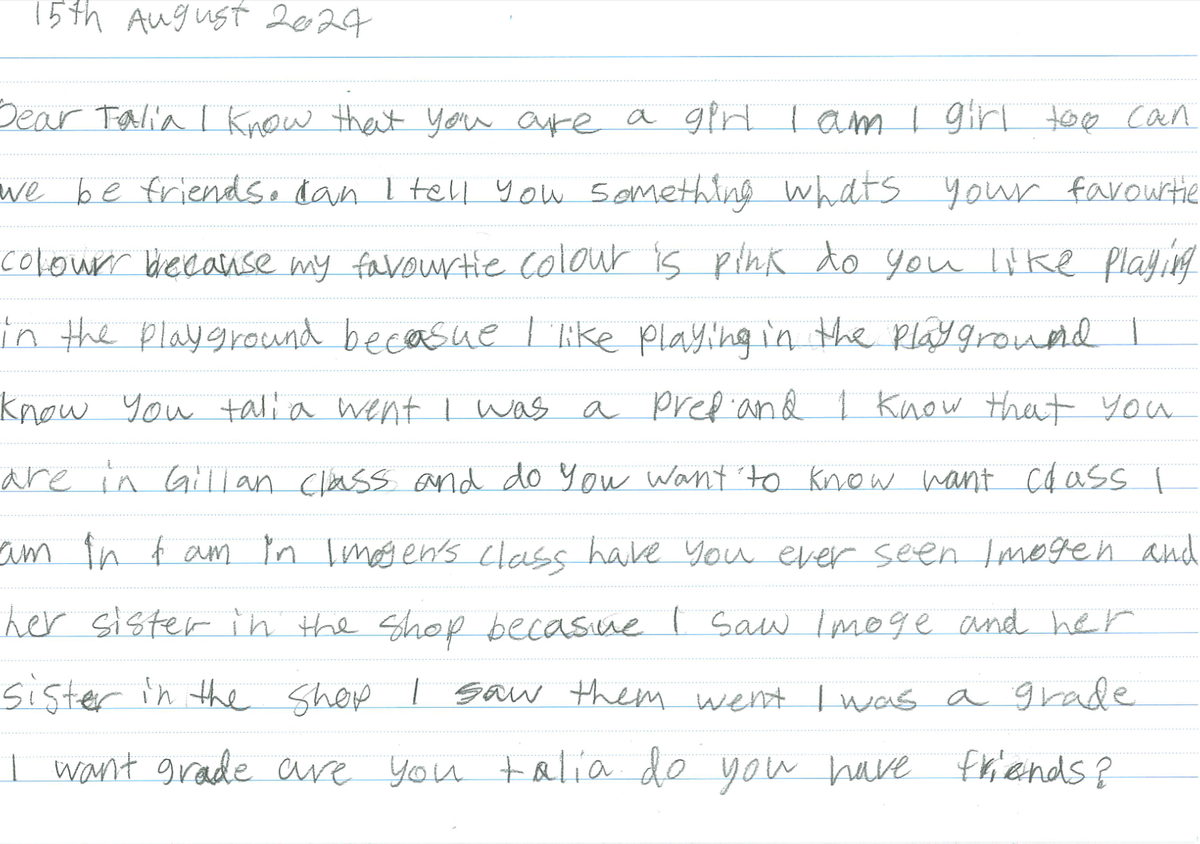 15th August 2024
Dear Talia I know that you are a girl I am I girl too can
we be friends. Can I tell you something whats your favourtie
colour because my favourtie colour is pink do you like playing
in the playground becasue I like playing in the playground I
know you talia went I was a prep and I know that you
are in Gillan class and do you want to know want class I
am in I am in Imogen's class have you ever seen Imogen and
her sister in the shop becasue I saw Imoge and her
sister in the shop I saw them went I was a grade
I want grade are you talia do you have friends?